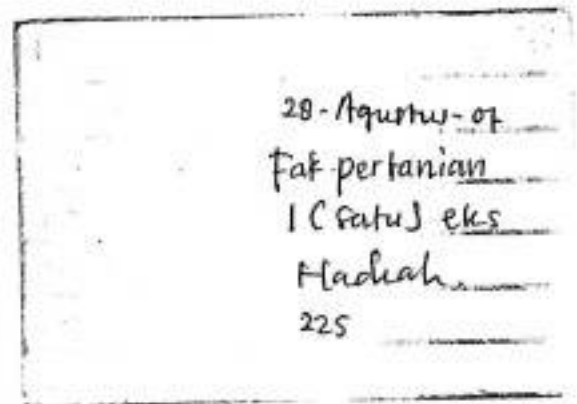 28-Agustus-07
Fak-pertanian
1 (satu) eks
Hadiah
225